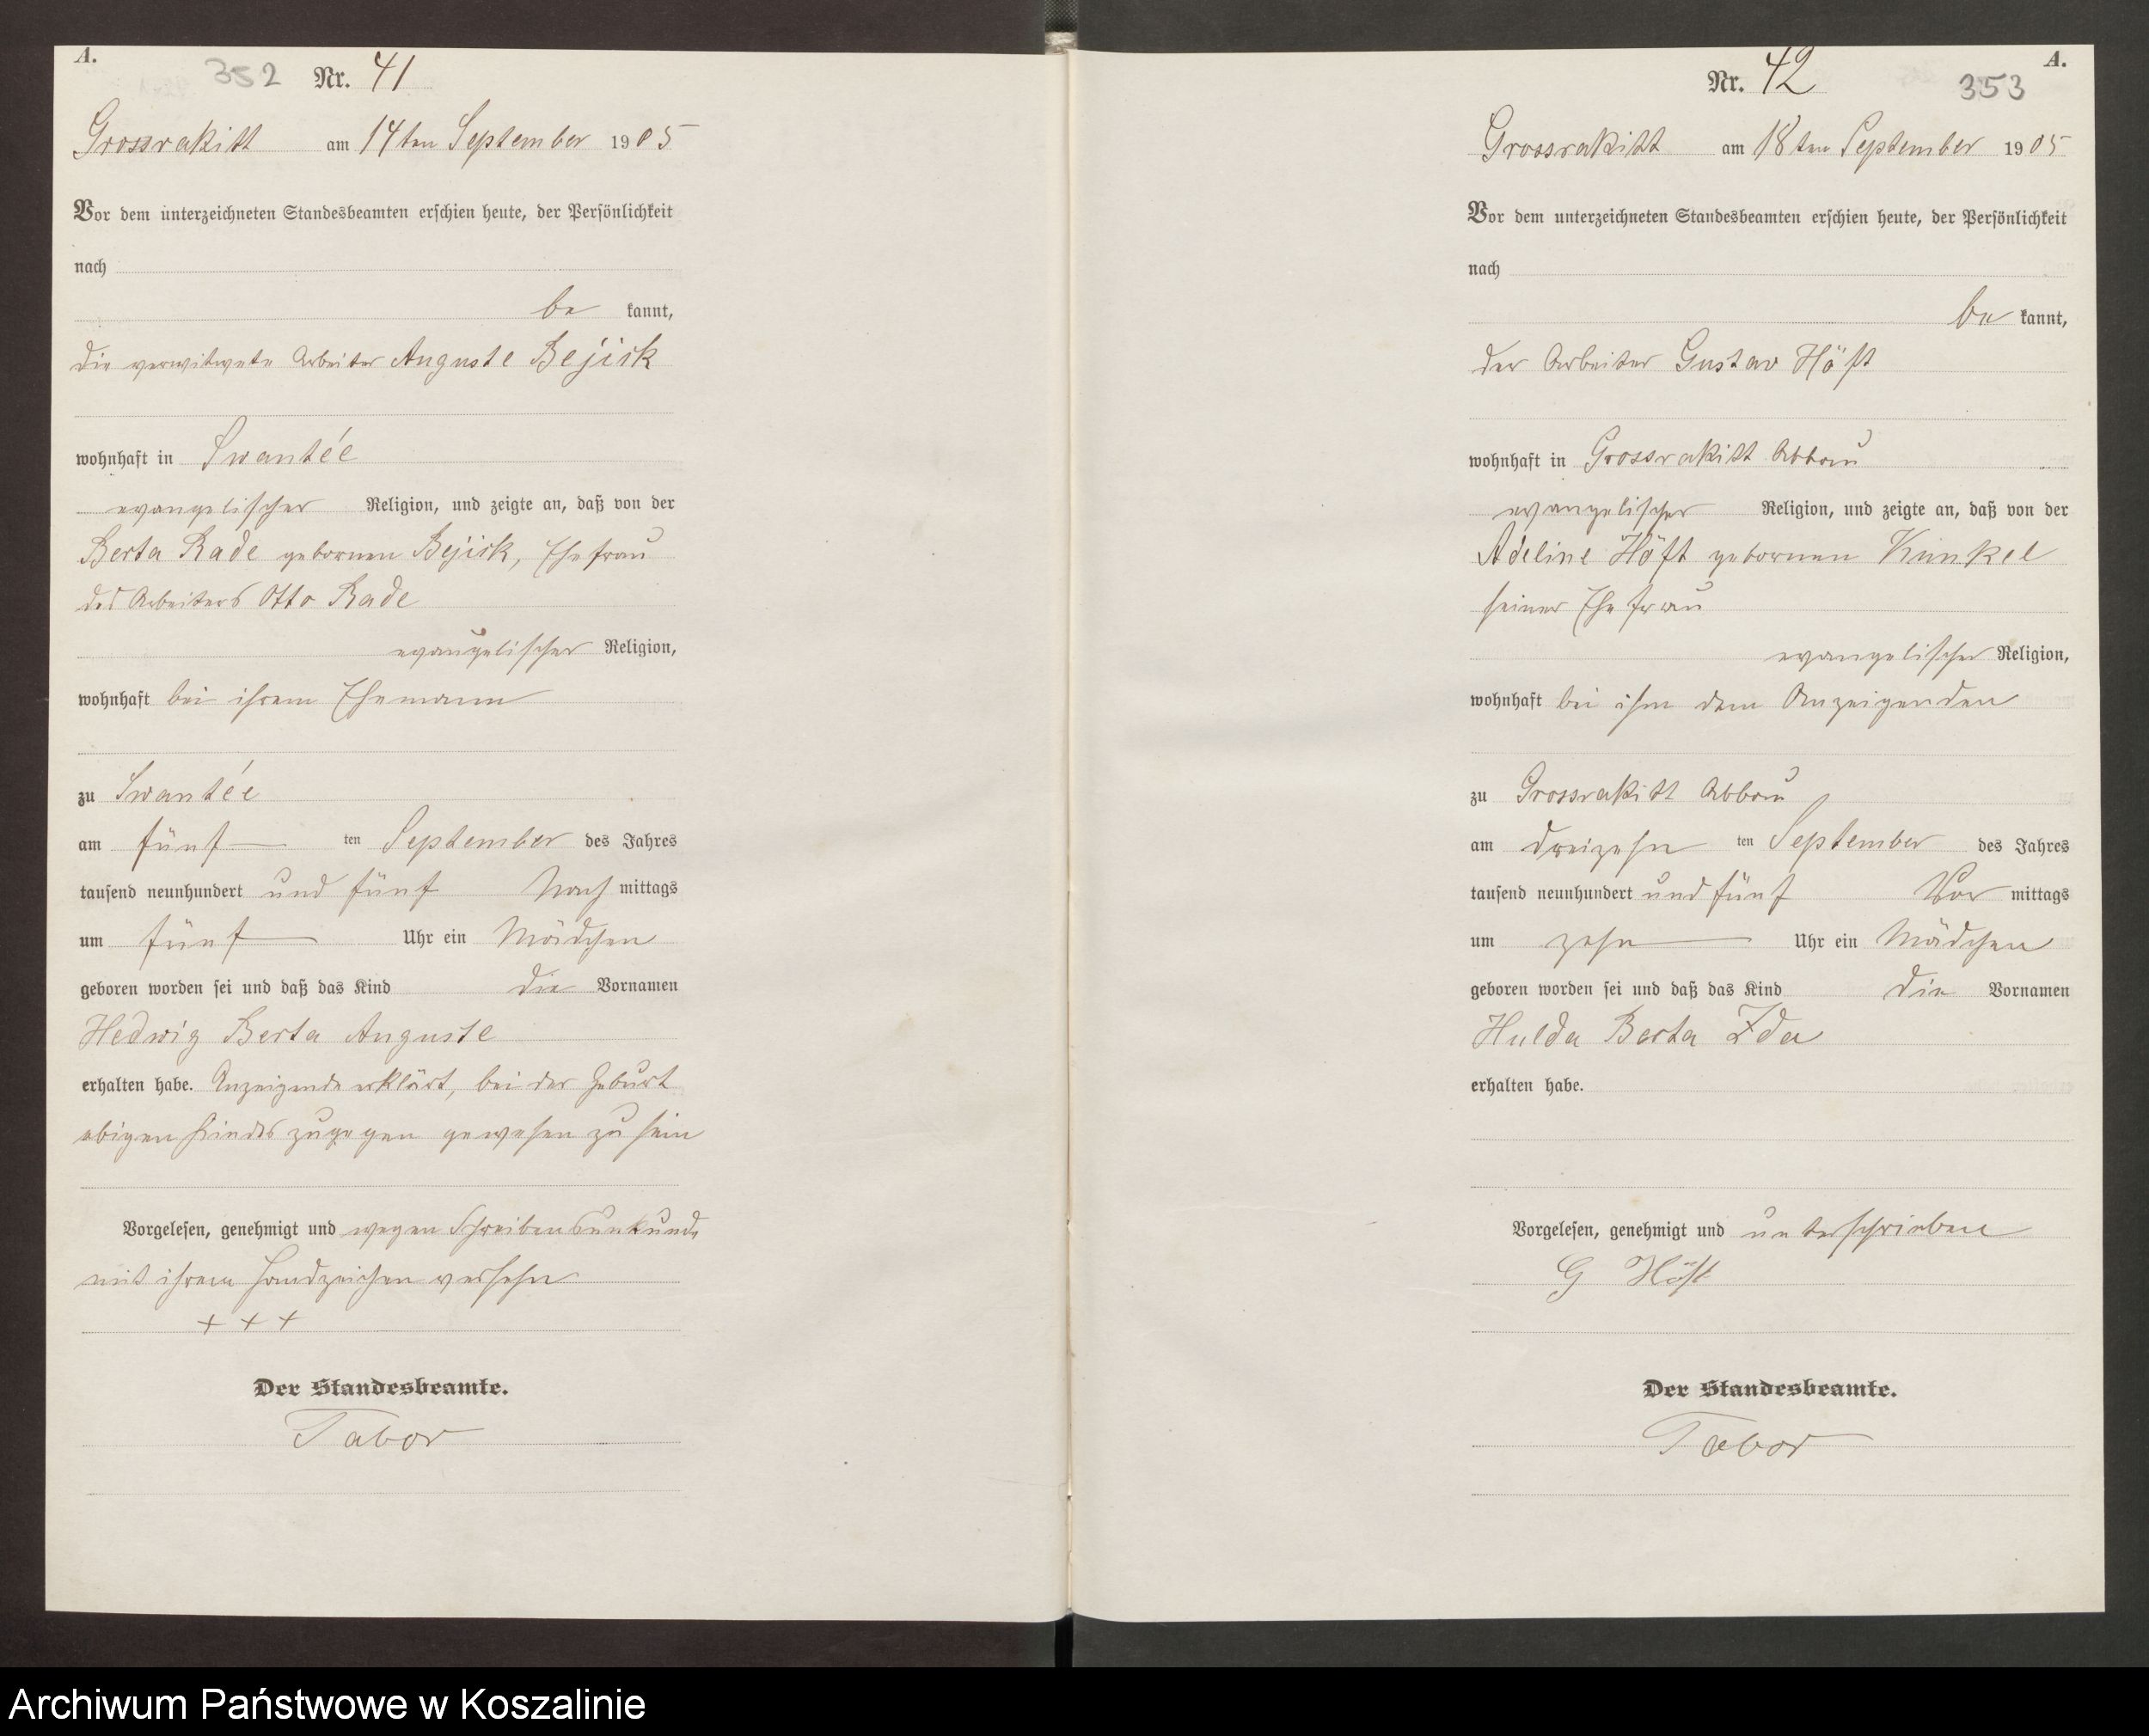 A.
352 Nr. 41
Grossrakitt am 14ten September 1905
Vor dem unterzeichneten Standesbeamten erschien heute, der Persönlichkeit
nach
be kannt,
die verwitwete Arbeiter Auguste Bejirk
wohnhaft in Swantée
evangelischer Religion, und zeigte an, daß von der
Berta Rade gebornen Bejirk, Ehefrau
des Arbeiters Otto Rade
evangelischer Religion,
wohnhaft bei ihrem Ehemann
zu Swantée
am fünf ten September des Jahres
tausend neunhundert und fünf Nach mittags
um fünf Uhr ein Mädchen
geboren worden sei und daß das Kind die Vornamen
Hedwig Berta Auguste
erhalten habe. Anzeigende erklärt, bei der Geburt
obigen Kindes zugegen gewesen zu sein
Vorgelesen, genehmigt und wegen Schreibensunkunde
mit ihrem Handzeichen versehn
+ + +
Der Standesbeamte.
Tabor
A.
Nr. 42 353
Grossrakitt am 18ten September 1905
Vor dem unterzeichneten Standesbeamten erschien heute, der Persönlichkeit
nach
be kannt,
der Arbeiter Gustav Höft
wohnhaft in Grossrakitt Abbau
evangelischer Religion, und zeigte an, daß von der
Adeline Höft gebornen Kunkel
seiner Ehefrau
evangelischer Religion,
wohnhaft bei ihm dem Anzeigenden
zu Grossrakitt Abbau
am dreizehn ten September des Jahres
tausend neunhundert und fünf Vor mittags
um zehn Uhr ein Mädchen
geboren worden sei und daß das Kind die Vornamen
Hulda Berta Ida
erhalten habe.
Vorgelesen, genehmigt und unterschrieben
G Höft
Der Standesbeamte.
Tabor
Archiwum Państwowe w Koszalinie